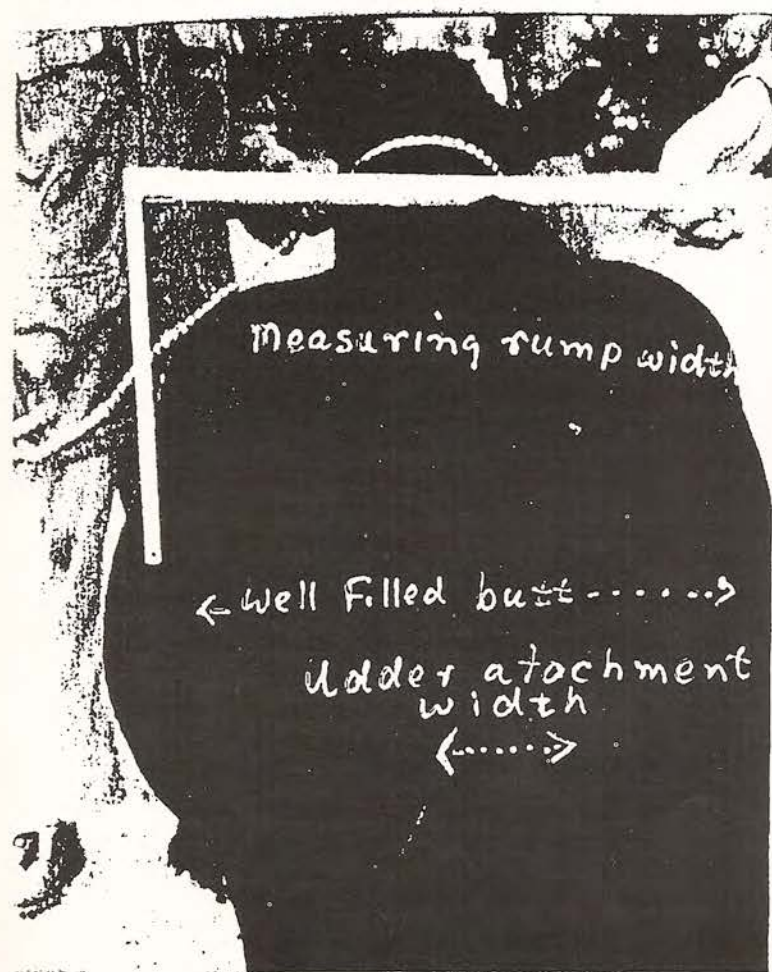 Measuring rump width
← well Filled butt ------->
Udder atachment
width
<......>